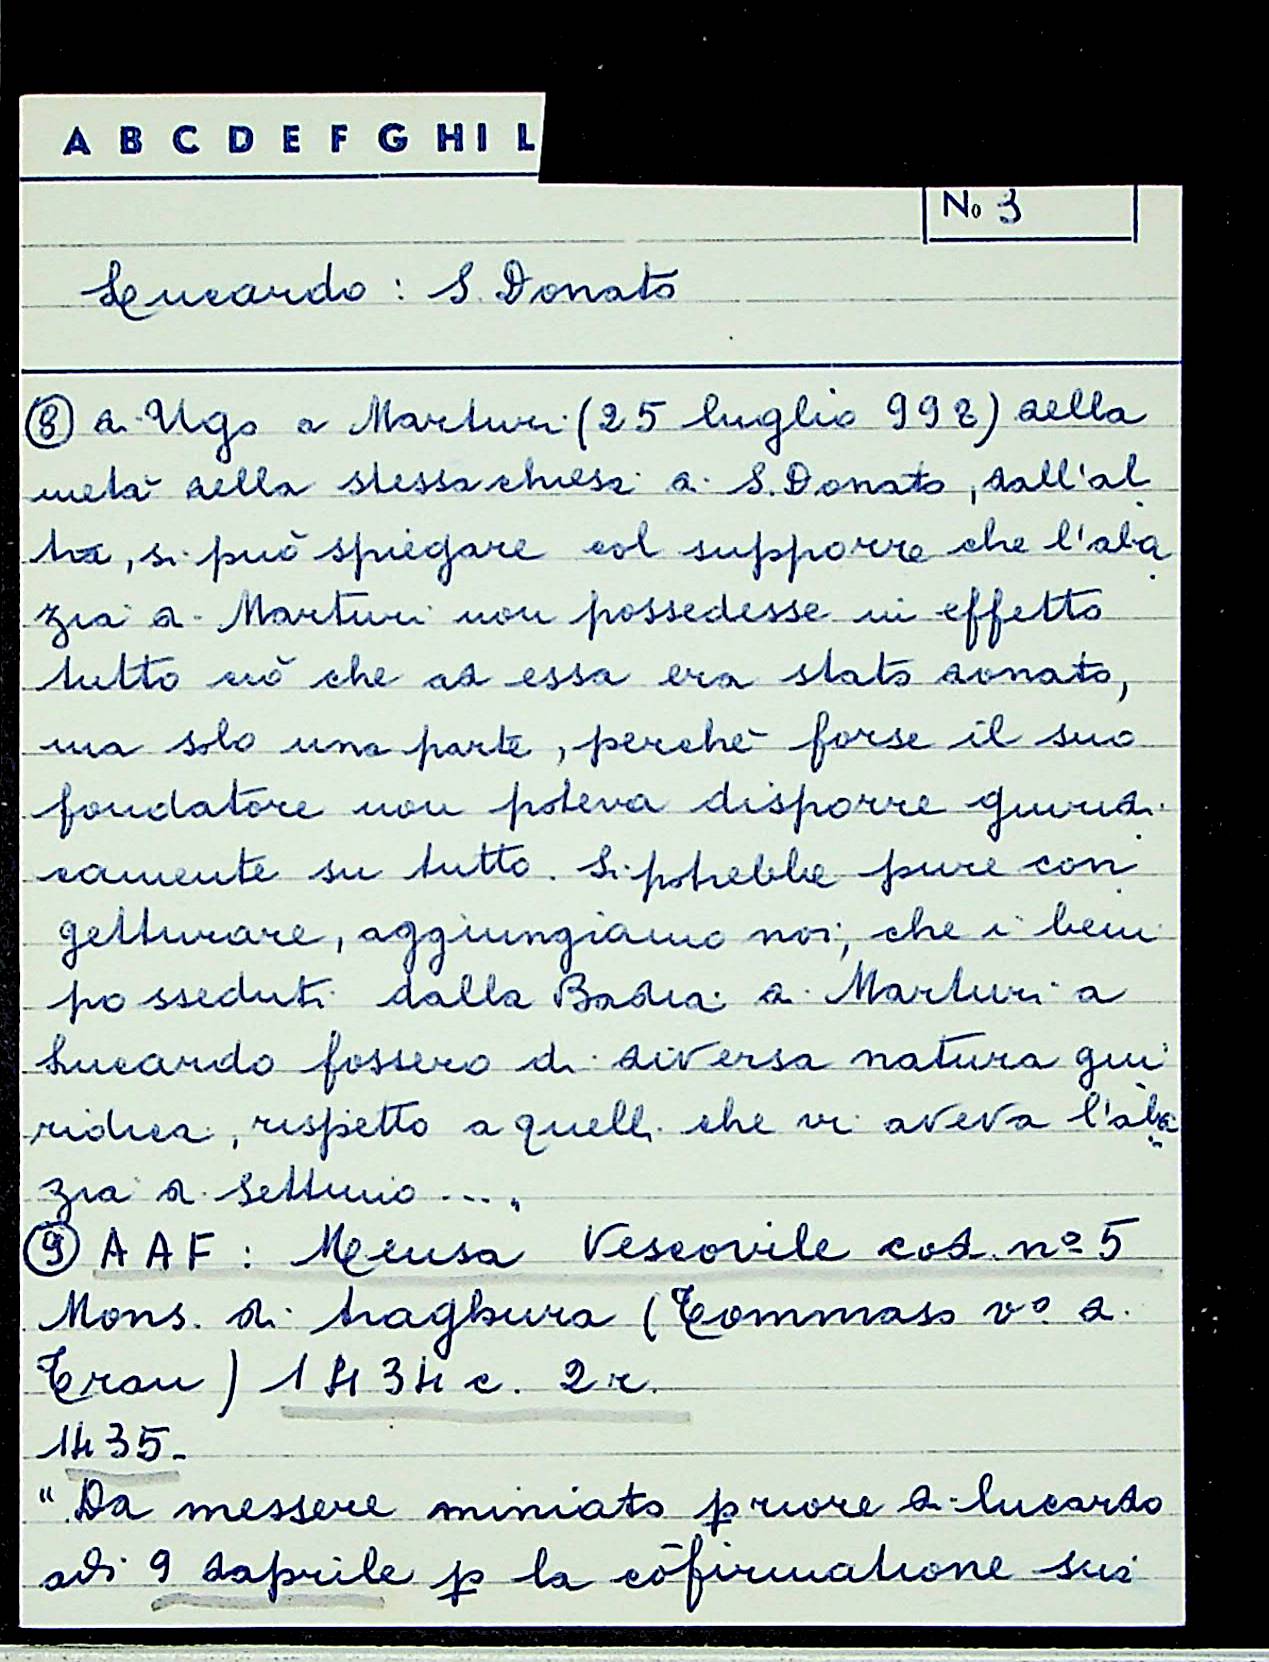 A B C D E F G H I L
No 3
Lucardo : S. Donato
⑧ di Ugo a Marturi (25 luglio 998) della
metà della stessa chiesa di S. Donato, dall'al
tra, si può spiegare col supporre che l'aba
zia di Marturi non possedesse in effetto
tutto ciò che ad essa era stato donato,
ma solo una parte, perché forse il suo
fondatore non poteva disporre giuridi
camente su tutto. Si potrebbe pure con
getturare, aggiungiamo noi, che i beni
posseduti dalla Badia di Marturi a
Lucardo fossero di diversa natura giu
ridica, rispetto a quelli che vi aveva l'aba
zia di Settimo ....
⑨ AAF : Mensa Vescovile cod. nº 5
Mons. di traghura (Tommaso vº di
Trau) 1434 c. 2 r.
1435-
" Da messere miniato priore di lucardo
adi 9 daprile p la cōfirmatione sui